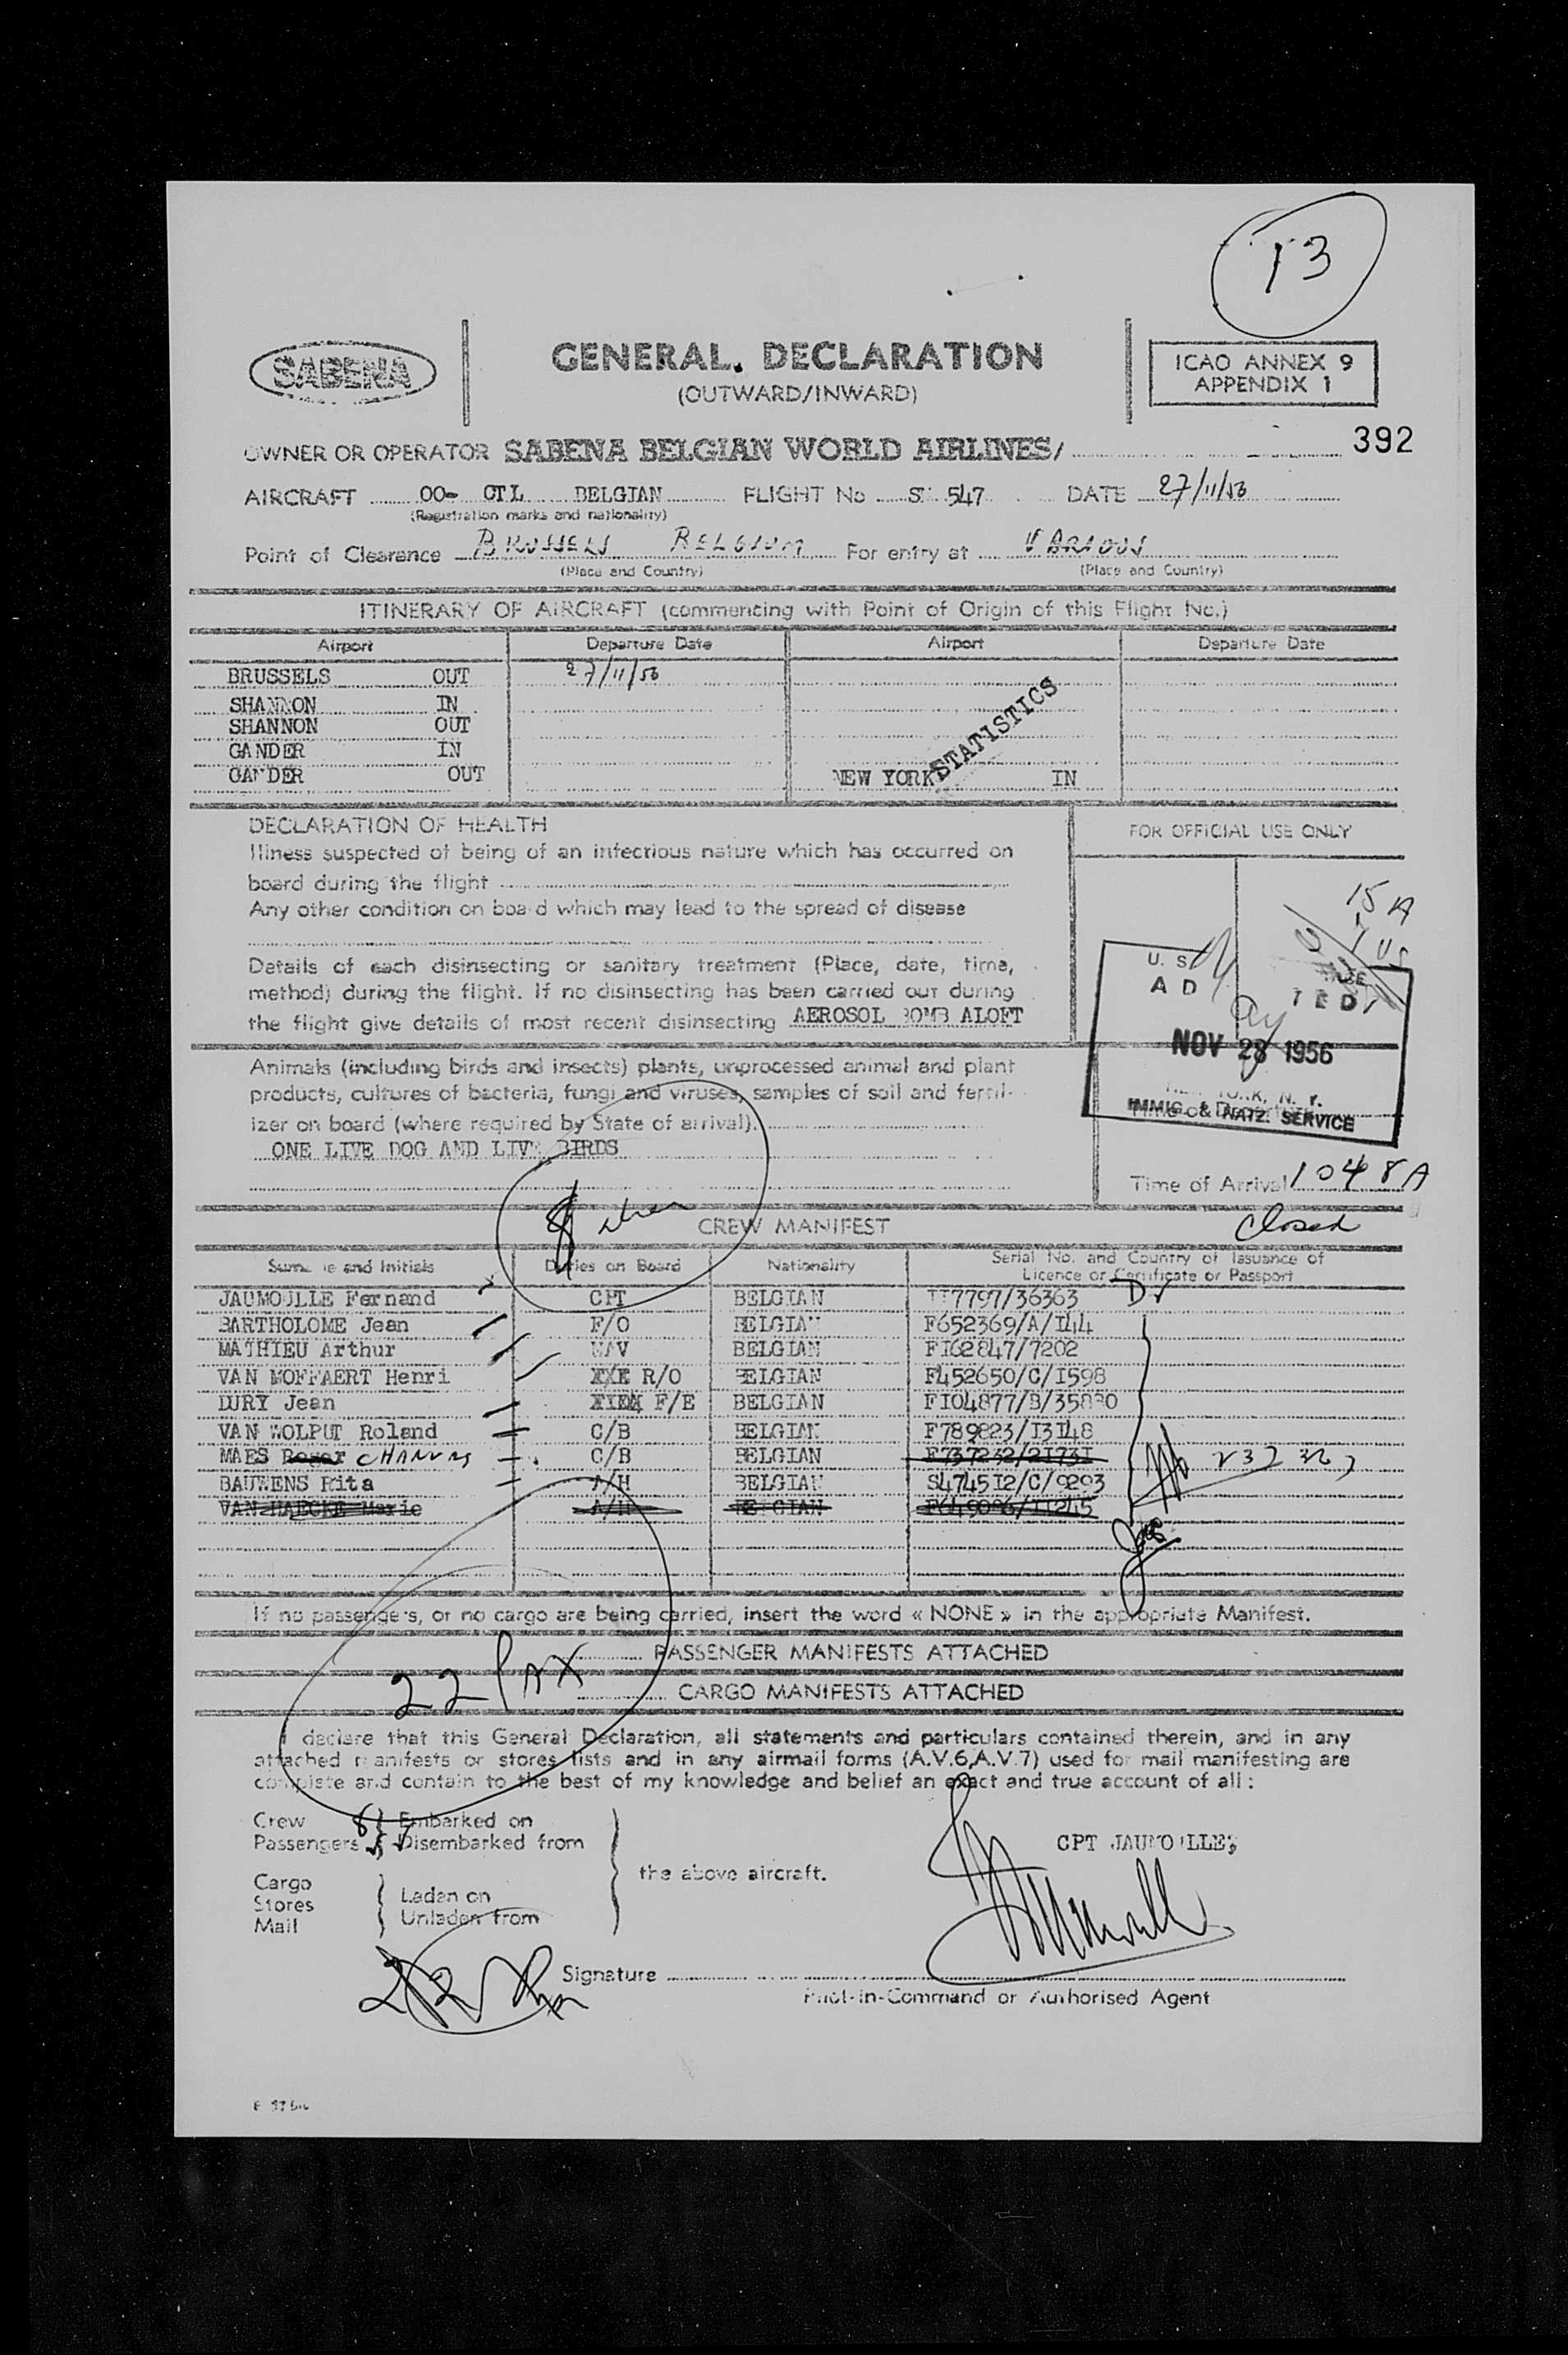 13
SABENA
GENERAL DECLARATION
(OUTWARD/INWARD)
ICAO ANNEX 9
APPENDIX 1
OWNER OR OPERATOR SABENA BELGIAN WORLD AIRLINES/
392
AIRCRAFT OO- CTL BELGIAN FLIGHT No 547 DATE 27/11/56
(Registration marks and nationality)
Point of Clearance BRUSSELS BELGIUM For entry at VARIOUS
(Place and Country) (Place and Country)
ITINERARY OF AIRCRAFT (commencing with Point of Origin of this Flight No.)
Airport Departure Date Airport Departure Date
BRUSSELS OUT 27/11/56
SHANNON IN
SHANNON OUT
GANDER IN
GANDER OUT NEW YORK IN
STATISTICS
DECLARATION OF HEALTH
Illness suspected of being of an infectious nature which has occurred on
board during the flight
Any other condition on board which may lead to the spread of disease
Details of each disinsecting or sanitary treatment (Place, date, time,
method) during the flight. If no disinsecting has been carried out during
the flight give details of most recent disinsecting AEROSOL BOMB ALOFT
FOR OFFICIAL USE ONLY
15 A
U. S.
A D T E D
NOV 28 1956
N. Y.
IMMIG. & NATZ. SERVICE
Animals (including birds and insects) plants, unprocessed animal and plant
products, cultures of bacteria, fungi and viruses, samples of soil and fertil-
izer on board (where required by State of arrival).
ONE LIVE DOG AND LIVE BIRDS
Time of Arrival 1048A
Closed
CREW MANIFEST
Surname and Initials Duties on Board Nationality Serial No. and Country of Issuance of
Licence or Certificate or Passport
JAUMOULLE Fernand CPT BELGIAN 7797/36363
BARTHOLOME Jean F/O BELGIAN F652369/A/I44
MATHIEU Arthur NAV BELGIAN FI62847/7202
VAN MOFFAERT Henri R/O BELGIAN F452650/C/I598
DURY Jean F/E BELGIAN FI04877/B/35880
VAN WOLPUT Roland C/B BELGIAN F789823/I3I48
MAES Roger C/B BELGIAN F737232/2I73I
BAUWENS Rita A/H BELGIAN S4745I2/C/9293
VAN HAECKE Marie A/H BELGIAN F649086/II245
If no passengers, or no cargo are being carried, insert the word « NONE » in the appropriate Manifest.
PASSENGER MANIFESTS ATTACHED
22 PAX
CARGO MANIFESTS ATTACHED
I declare that this General Declaration, all statements and particulars contained therein, and in any
attached manifests or stores lists and in any airmail forms (A.V.6,A.V.7) used for mail manifesting are
complete and contain to the best of my knowledge and belief an exact and true account of all :
Crew 8 Embarked on
Passengers Disembarked from
the above aircraft.
CPT JAUMOULLE
Cargo
Stores Laden on
Mail Unladen from
Signature
Pilot-in-Command or Authorised Agent